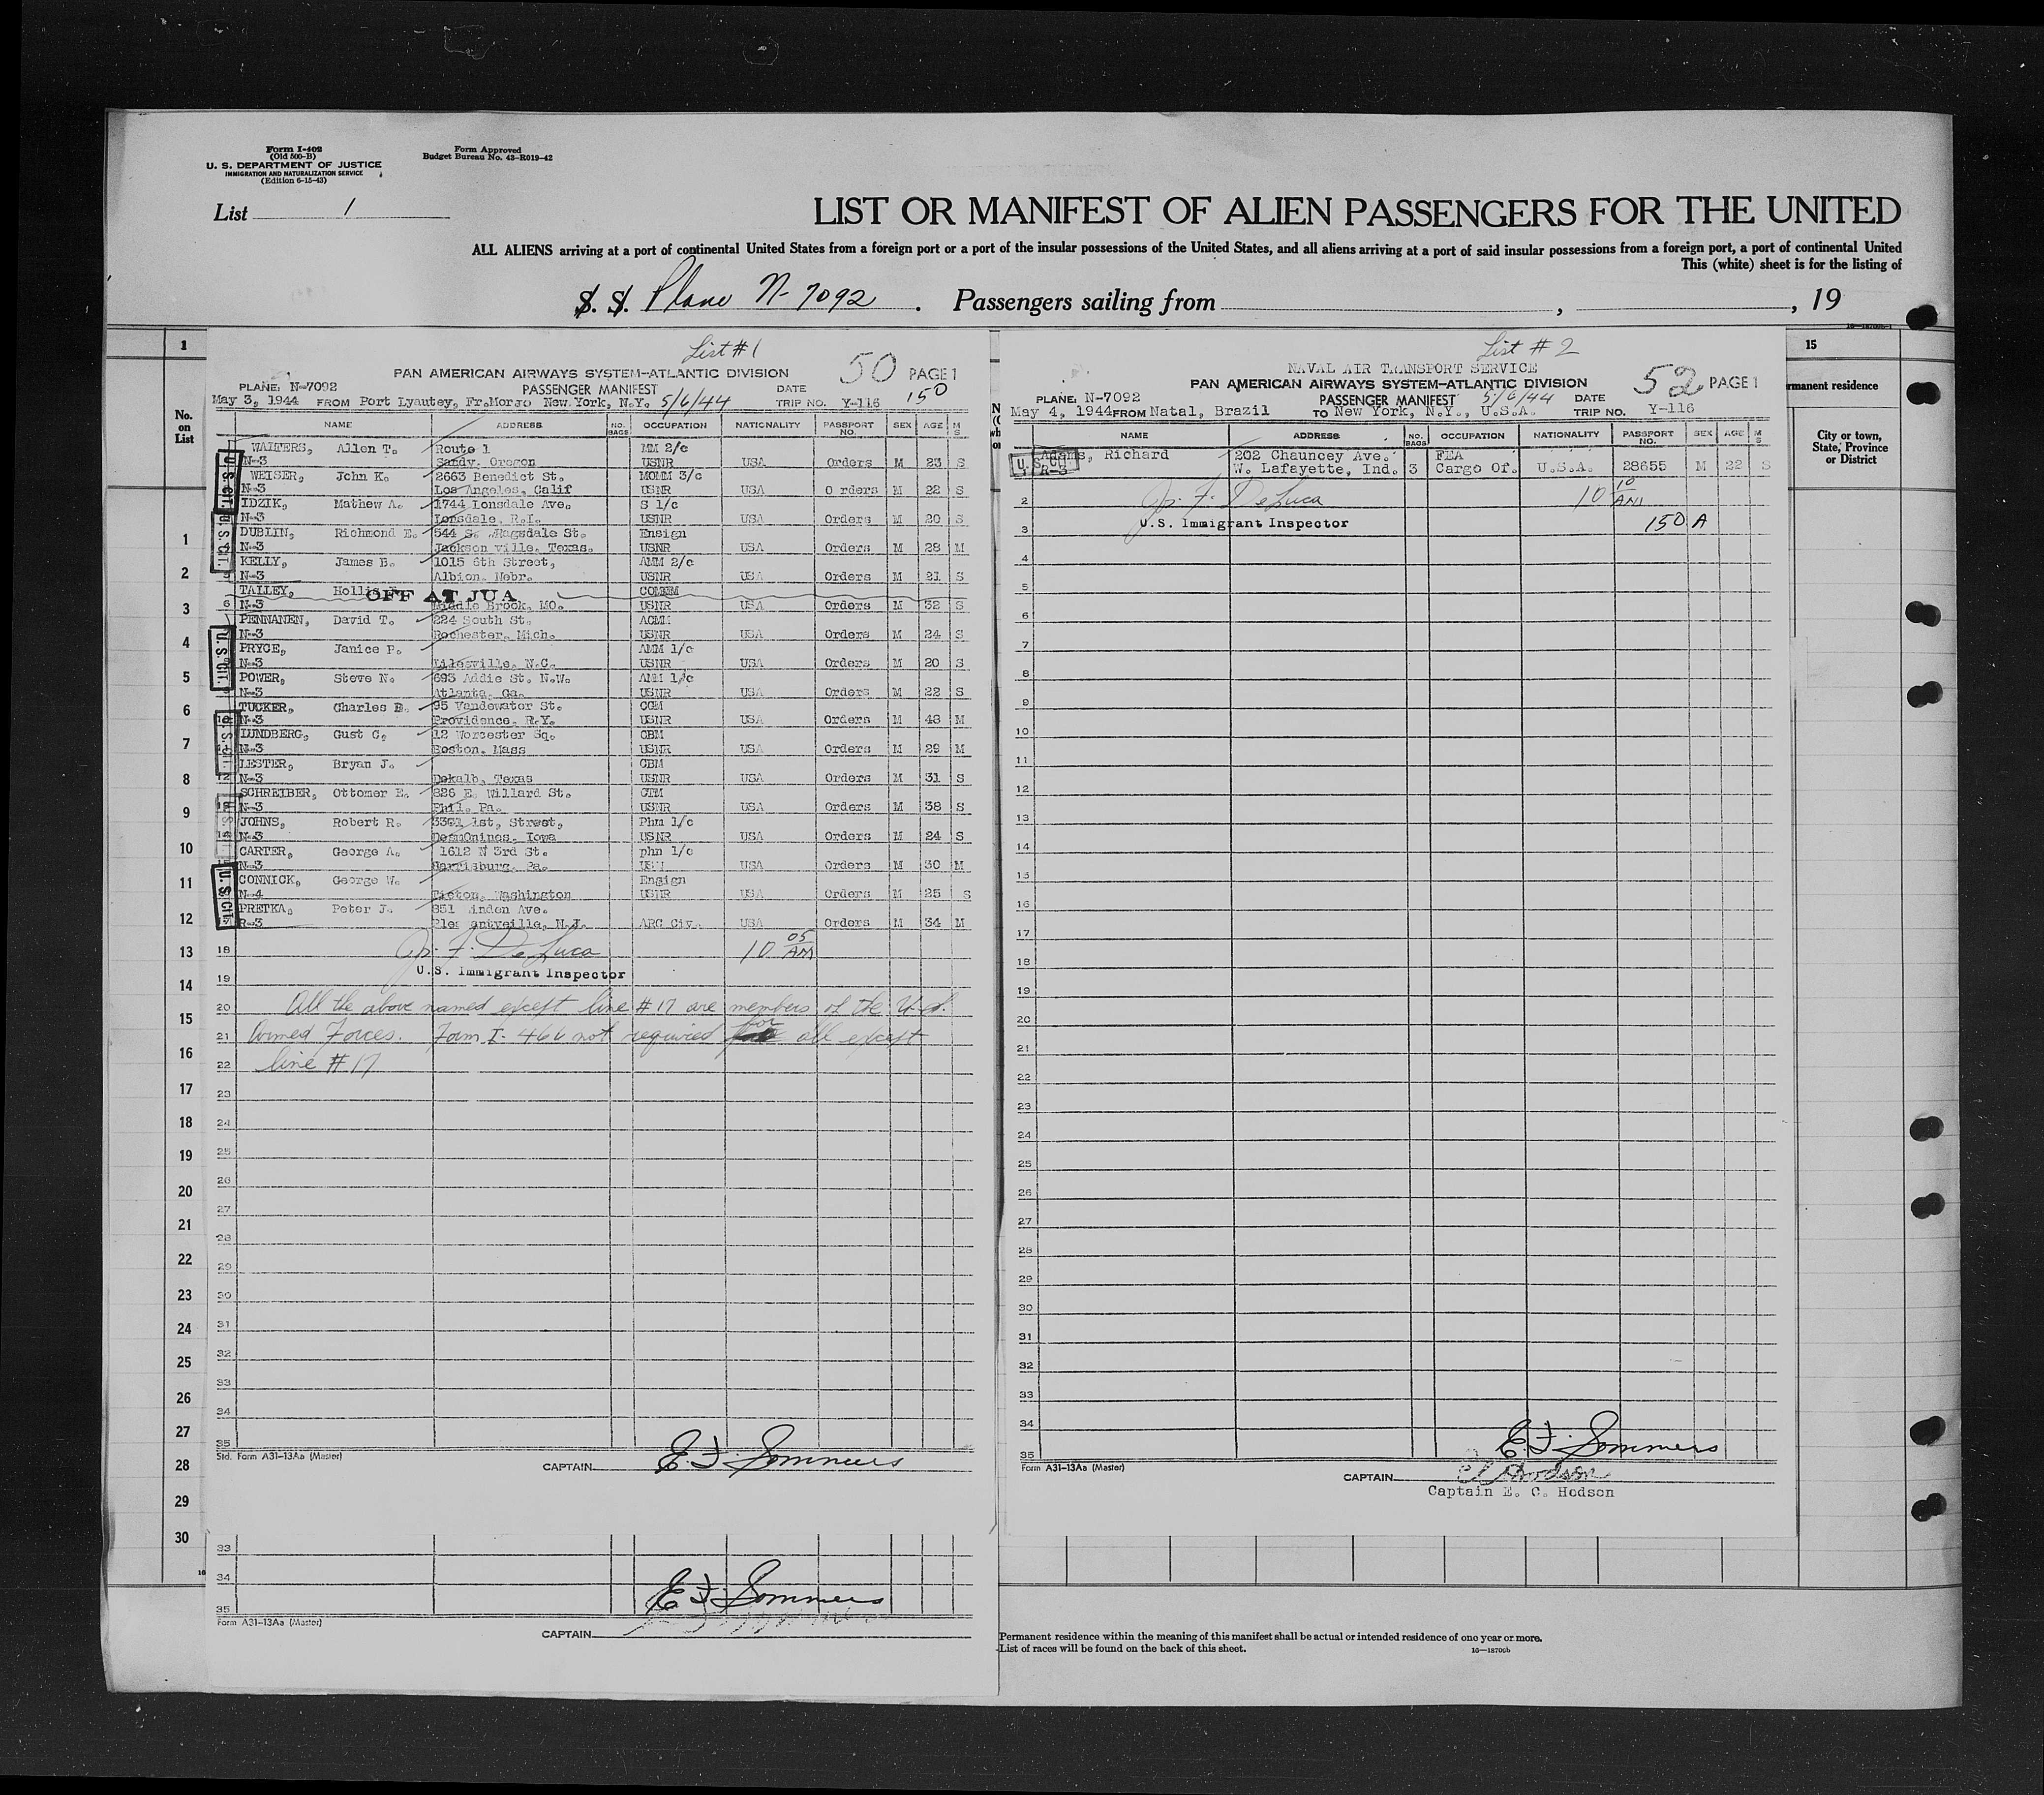 Form I-402
(Old 500-B)
U. S. DEPARTMENT OF JUSTICE
IMMIGRATION AND NATURALIZATION SERVICE
(Edition 6-15-43)
Form Approved
Budget Bureau No. 43-R019-42
List 1
LIST OR MANIFEST OF ALIEN PASSENGERS FOR THE UNITED
ALL ALIENS arriving at a port of continental United States from a foreign port or a port of the insular possessions of the United States, and all aliens arriving at a port of said insular possessions from a foreign port, a port of continental United
This (white) sheet is for the listing of
S. S. Plane N-7092 . Passengers sailing from , , 19
1
No. on List
1
2
3
4
5
6
7
8
9
10
11
12
13
14
15
16
17
18
19
20
21
22
23
24
25
26
27
28
29
30
List #1
PAN AMERICAN AIRWAYS SYSTEM-ATLANTIC DIVISION 50 PAGE 1
PLANE: N-7092 PASSENGER MANIFEST DATE 150
May 3, 1944 FROM Port Lyautey, Fr.Mor TO New York, N.Y. 5/6/44 TRIP NO. Y-116
NAME ADDRESS NO. BAGS OCCUPATION NATIONALITY PASSPORT NO. SEX AGE M S
WALTERS, Allen T. Route 1 MM 2/c
N-3 Sandy, Oregon USNR USA Orders M 23 S
WEISER, John K. 2663 Benedict St. MOMM 3/c
N-3 Los Angeles, Calif USNR USA O rders M 22 S
IDZIK, Mathew A. 1744 Lonsdale Ave. S 1/c
N-3 Lonsdale, R.I. USNR USA Orders M 20 S
DUBLIN, Richmond E. 544 S. Ragsdale St. Ensign
N-3 Jackson ville, Texas. USNR USA Orders M 28 M
KELLY, James B. 1015 6th Street, AMM 2/c
N-3 Albion, Nebr. USNR USA Orders M 21 S
TALLEY, Hollis OFF AT JUA COMMM
6 N-3 Middle Brook, MO. USNR USA Orders M 32 S
PENNANEN, David T. 224 South St. ACMM
N-3 Rochester, Mich. USNR USA Orders M 24 S
PRYCE, Janice P. AMM 1/c
N-3 Lilesville, N.C. USNR USA Orders M 20 S
POWER, Steve N. 693 Addie St. N.W. AMM 1/c
N-3 Atlanta, Ga. USNR USA Orders M 22 S
TUCKER, Charles B. 95 Vandewater St. CGM
N-3 Providence, R.Y. USNR USA Orders M 43 M
LUNDBERG, Gust C. 12 Worcester Sq. CBM
N-3 Boston, Mass USNR USA Orders M 29 M
LESTER, Bryan J. CBM
12 N-3 Dekalb, Texas USNR USA Orders M 31 S
SCHREIBER, Ottomer E. 826 E. Willard St. CTM
N-3 Phil, Pa. USNR USA Orders M 38 S
JOHNS, Robert R. 1st, Street, Phm 1/c
N-3 DesmOnines, Iowa USNR USA Orders M 24 S
CARTER, George A. 1612 N 3rd St. phn 1/c
N-3 Harrisburg, Pa. USN USA Orders M 30 M
CONNICK, George W. Ensign
N-4 Tieton, Washington USNR USA Orders M 25 S
PRETKA, Peter J. 851 inden Ave.
R-3 Ple antville, N.J. ARC Civ. USA Orders M 34 M
U.S. CIT.
U.S. CIT.
U.S. CIT.
U.S. CIT.
18 Jos. F. DeLuca 10 05 AM
U.S. Immigrant Inspector
19
20 All the above named except line #17 are members of the U.S.
21 Armed Forces. Form I-466 not required for all except
22 line #17
23
24
25
26
27
28
29
30
31
32
33
34
35
Std. Form A31-13Aa (Master)
CAPTAIN E. F. Sommers
33
34
35
Form A31-13Aa (Master)
CAPTAIN E F Sommers
List #2
NAVAL AIR TRANSPORT SERVICE
PAN AMERICAN AIRWAYS SYSTEM-ATLANTIC DIVISION 52 PAGE 1
PLANE: N-7092 PASSENGER MANIFEST 5/6/44 DATE
May 4, 1944 FROM Natal, Brazil TO New York, N.Y., U.S.A. TRIP NO. Y-116
NAME ADDRESS NO. BAGS OCCUPATION NATIONALITY PASSPORT NO. SEX AGE M S
Adams, Richard 202 Chauncey Ave. FEA
U.S. CIT R-3 W. Lafayette, Ind. 3 Cargo Of. U.S.A. 28655 M 22 S
2 Jos. F. DeLuca 10 10 AM
3 U.S. Immigrant Inspector 150 A
4
5
6
7
8
9
10
11
12
13
14
15
16
17
18
19
20
21
22
23
24
25
26
27
28
29
30
31
32
33
34
35
E. F. Sommers
Form A31-13Aa (Master)
CAPTAIN E C Hodson
Captain E. C. Hodson
15
rmanent residence
City or town, State, Province or District
Permanent residence within the meaning of this manifest shall be actual or intended residence of one year or more.
List of races will be found on the back of this sheet.
16—18706b